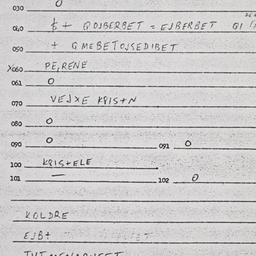 030 0
040 & + QOJBERBET = EJBERBET QI
050 + GMEBETOJSEDIBET
X060 PE,RENE
061 0
070 VEJXE KRIS+N
080 0
090 0 091 0
100 KRIS+ELE
101 — 102 0
KOLDRE
EJB+